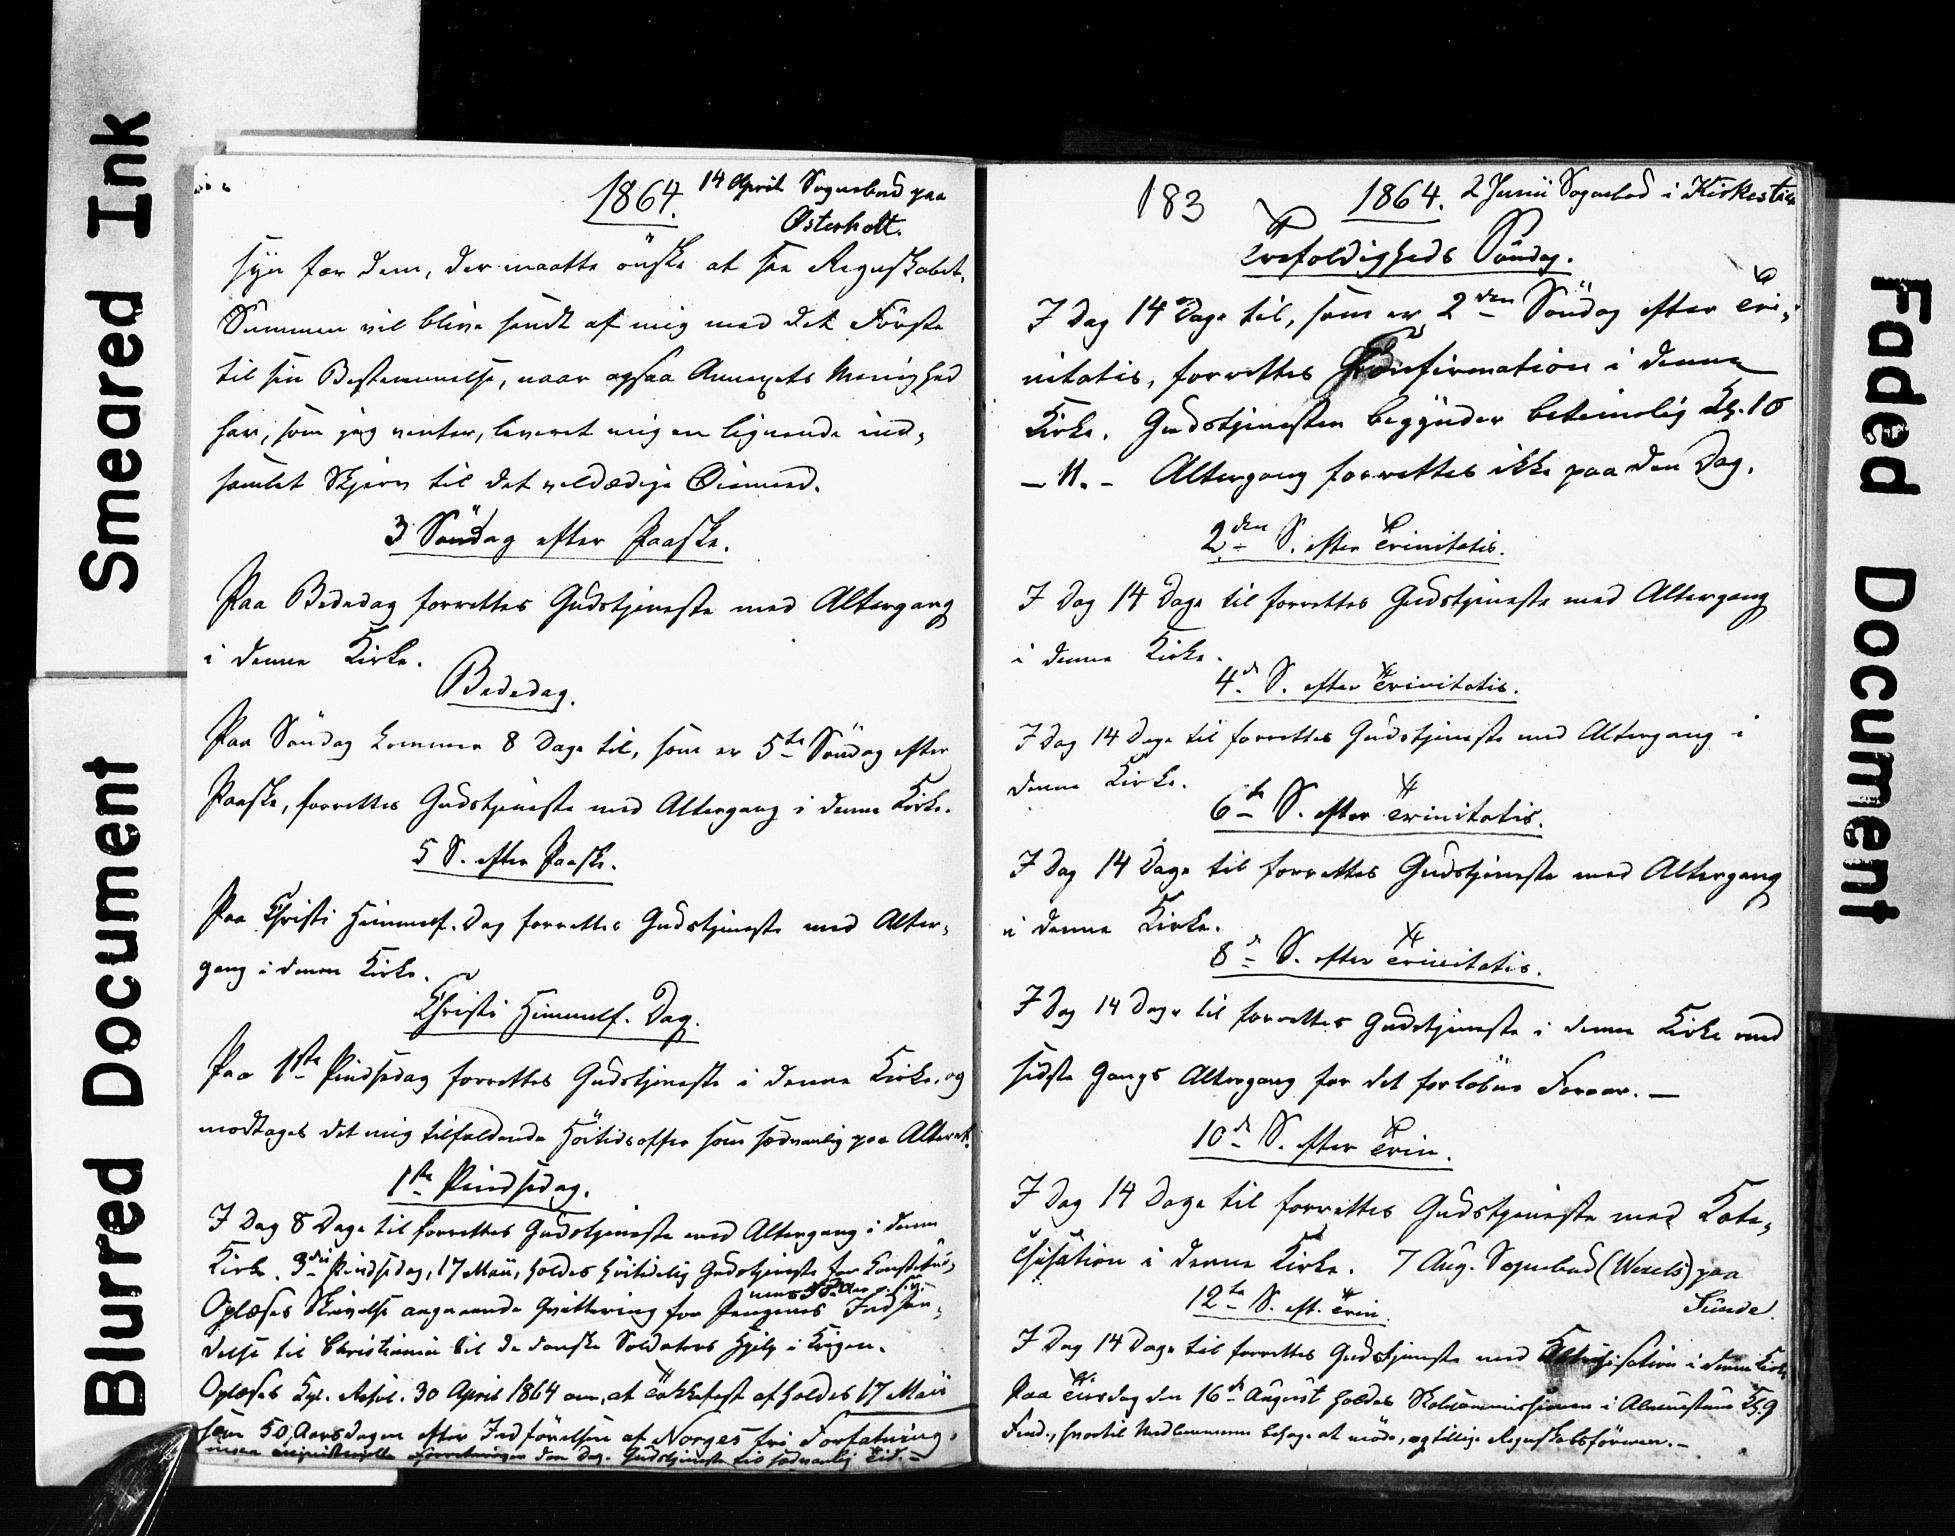 Smeared Ink
Blurred Document
Faded Document
1864. 14 April Sognebud paa
Østerholt.
syn for dem, der maatte önske at see Regnskabet.
Summen vil blive sendt af mig med det Første
til sin Bestemmelse, naar ogsaa Annexets Menighed
har, som jeg venter, leveret mig en lignende ind-
samlet Skjerv til det veldædige Øiemed.
3 Söndag efter Paaske.
Paa Bededag forrettes Gudstjeneste med Altergang
i denne Kirke.
Bededag.
Paa Söndag kommer 8 Dage til, som er 5te Söndag efter
Paaske, forrettes Gudstjeneste med Altergang i denne Kirke.
5 S. efter Paaske.
Paa Christi Himmelf. Dag forrettes Gudstjeneste med Alter-
gang i denne Kirke.
Christi Himmelf. Dag.
Paa 1ste Pindsedag forrettes Gudstjeneste i denne Kirke, og
modtages det mig tilfaldende Höitidsoffer som sædvanlig paa Alteret.
1ste Pindsedag.
I Dag 8 Dage til forrettes Gudstjeneste med Altergang i denne
Kirke. 3die Pindsedag, 17 Mai, holdes höitidelig Gudstjeneste for Constitu-
Oplæses Skrivelse angaaende Qvittering for Pengenes Indsen-
delse til Christiania til de danske Soldaters Hjelp i Krigen.
Oplæses Kgl. Resol. 30 April 1864 om, at Takkefest afholdes 17 Mai
som 50 Aarsdagen efter Indförelsen af Norges fri Forfatning,
den Dag. Gudstjeneste til sædvanlig Tid. –
183 1864. 2 Junii Sognebud i Kirkestuen
Trefoldigheds Söndag.
I Dag 14 Dage til, som er 2den Söndag efter Tri-
nitatis, forrettes Confirmation i denne
Kirke. Gudstjenesten begynder betimelig Kl. 10
– 11. – Altergang forrettes ikke paa den Dag.
2den S. efter Trinitatis.
I Dag 14 Dage til forrettes Gudstjeneste med Altergang
i denne Kirke.
4d. S. efter Trinitatis.
I Dag 14 Dage til forrettes Gudstjeneste med Altergang i
denne Kirke.
6te S. efter Trinitatis.
I Dag 14 Dage til forrettes Gudstjeneste med Altergang
i denne Kirke.
8d S. efter Trinitatis.
I Dag 14 Dage til forrettes Gudstjeneste i denne Kirke med
sidste Gangs Altergang for det forløbne Foraar. –
10d S. efter Trin.
I Dag 14 Dage til forrettes Gudstjeneste med Kate-
chisation i denne Kirke. 7 Aug. Sognebud (Wexels) paa
Sünde.
12te S. eft. Trin.
I Dag 14 Dage til forrettes Gudstjeneste med Katechisation i denne Kirke
Paa Tirsdag den 16d August holdes Skolecommissionen i Almuestuen Kl. 9
Form., hvortil Medlemmerne behage at möde, og tillige Regnskabsföreren. –